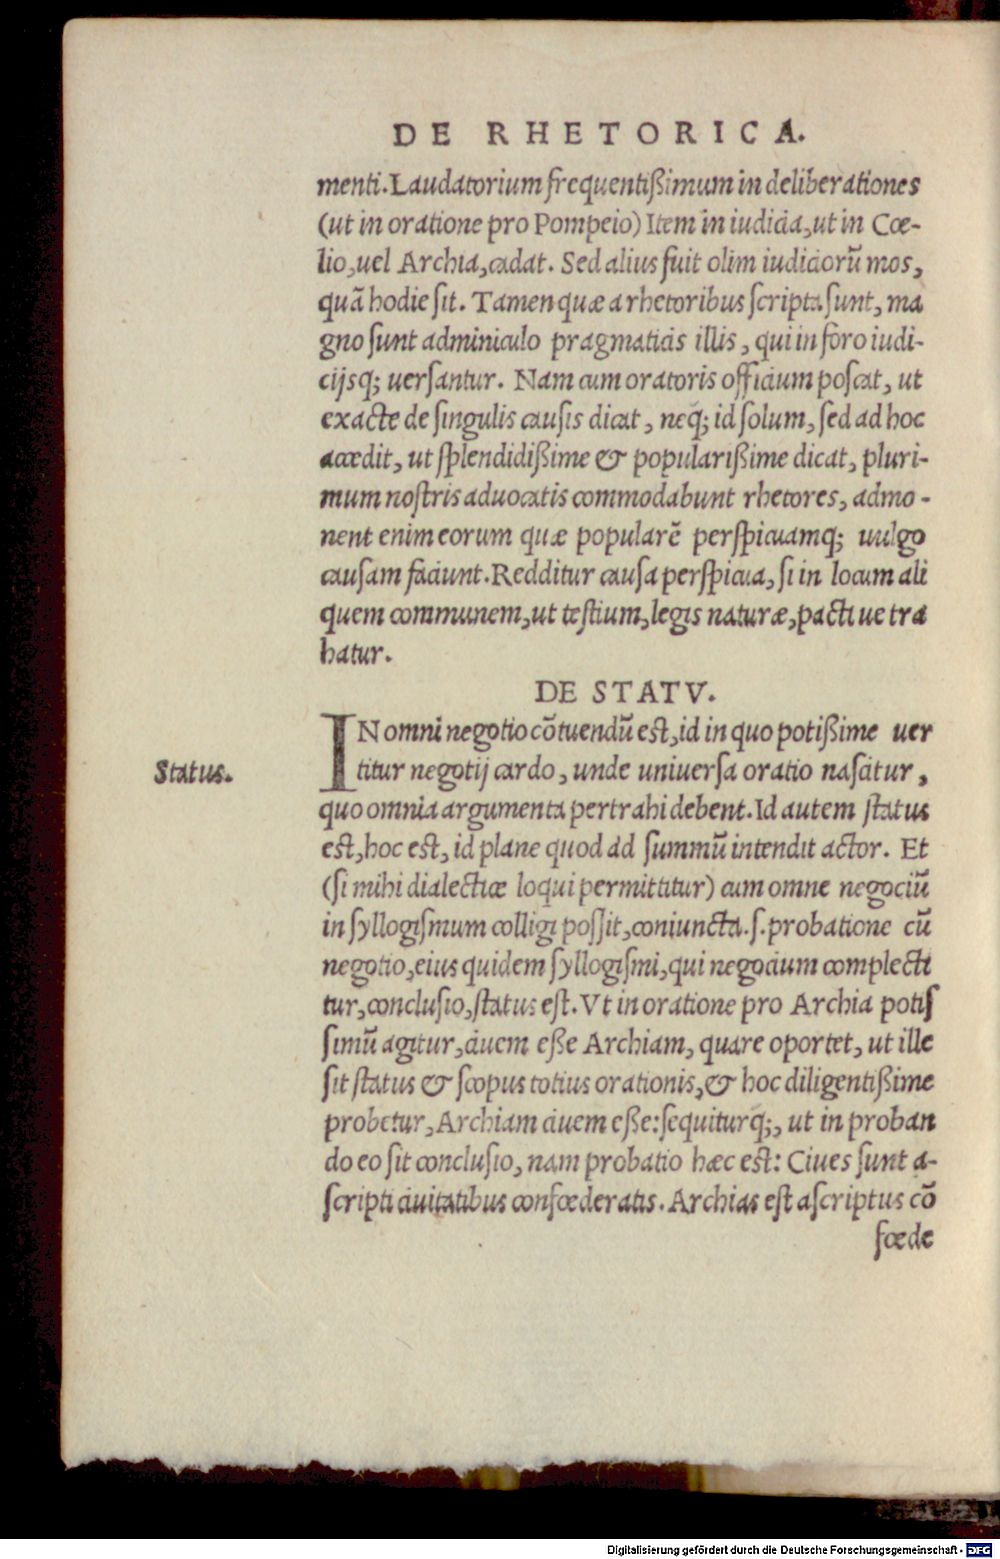 DE RHETORICA.
menti. Laudatorium frequentißimum in deliberationes
(ut in oratione pro Pompeio) Item in iudicia, ut in Cœ-
lio, uel Archia, cadat. Sed alius fuit olim iudiciorũ mos,
quã hodie sit. Tamen quæ a rhetoribus scripta sunt, ma
gno sunt adminiculo pragmaticis illis, qui in foro iudi-
cijsq; uersantur. Nam cum oratoris officium poscat, ut
exacte de singulis causis dicat, neq; id solum, sed ad hoc
accedit, ut splendidißime & popularißime dicat, pluri-
mum nostris aduocatis commodabunt rhetores, admo-
nent enim eorum quæ popularẽ perspicuamq; uulgo
causam faciunt. Redditur causa perspicua, si in locum ali
quem communem, ut testium, legis naturæ, pacti ue tra
hatur.
DE STATV.
IN omni negotio cõtuendũ est, id in quo potißime uer
Status.
titur negotij cardo, unde universa oratio nascitur,
quo omnia argumenta pertrahi debent. Id autem status
est, hoc est, id plane quod ad summũ intendit actor. Et
(si mihi dialecticæ loqui permittitur) cum omne negociũ
in syllogismum colligi possit, coniuncta .s. probatione cũ
negotio, eius quidem syllogismi, qui negocium complecti
tur, conclusio, status est. Vt in oratione pro Archia potis
simũ agitur, ciuem eße Archiam, quare oportet, ut ille
sit status & scopus totius orationis, & hoc diligentißime
probetur, Archiam ciuem eße: sequiturq;, ut in proban
do eo sit conclusio, nam probatio hæc est: Ciues sunt a-
scripti ciuitatibus confœderatis. Archias est ascriptus cõ
fœde
Digitalisierung gefördert durch die Deutsche Forschungsgemeinschaft - DFG